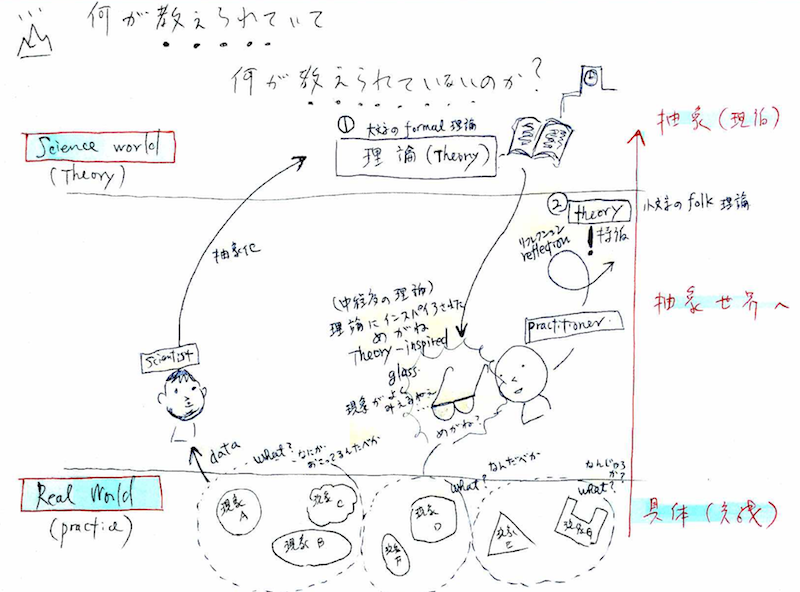 何が教えられていて
何が教えられていないのか?
① 大文字のformal 理論
理論 (Theory)
Science world
(Theory)
抽象 (理論)
② theory
小文字の folk 理論
リフレクション
reflection
抽象化
(中程度の理論)
理論にインスパイアされた
めがね
Theory-inspired
glass
現象が よく
みえるねぇ
practitioner
抽象世界へ
scientist
めがね?
data
what? なにが
おこってるんだべか
what? なんだべか
なんじゃろ
か?
what?
Real World
(practice)
現象
A
現象
B
現象
C
現象
D
現象
E
現象
F
具体 (実践)